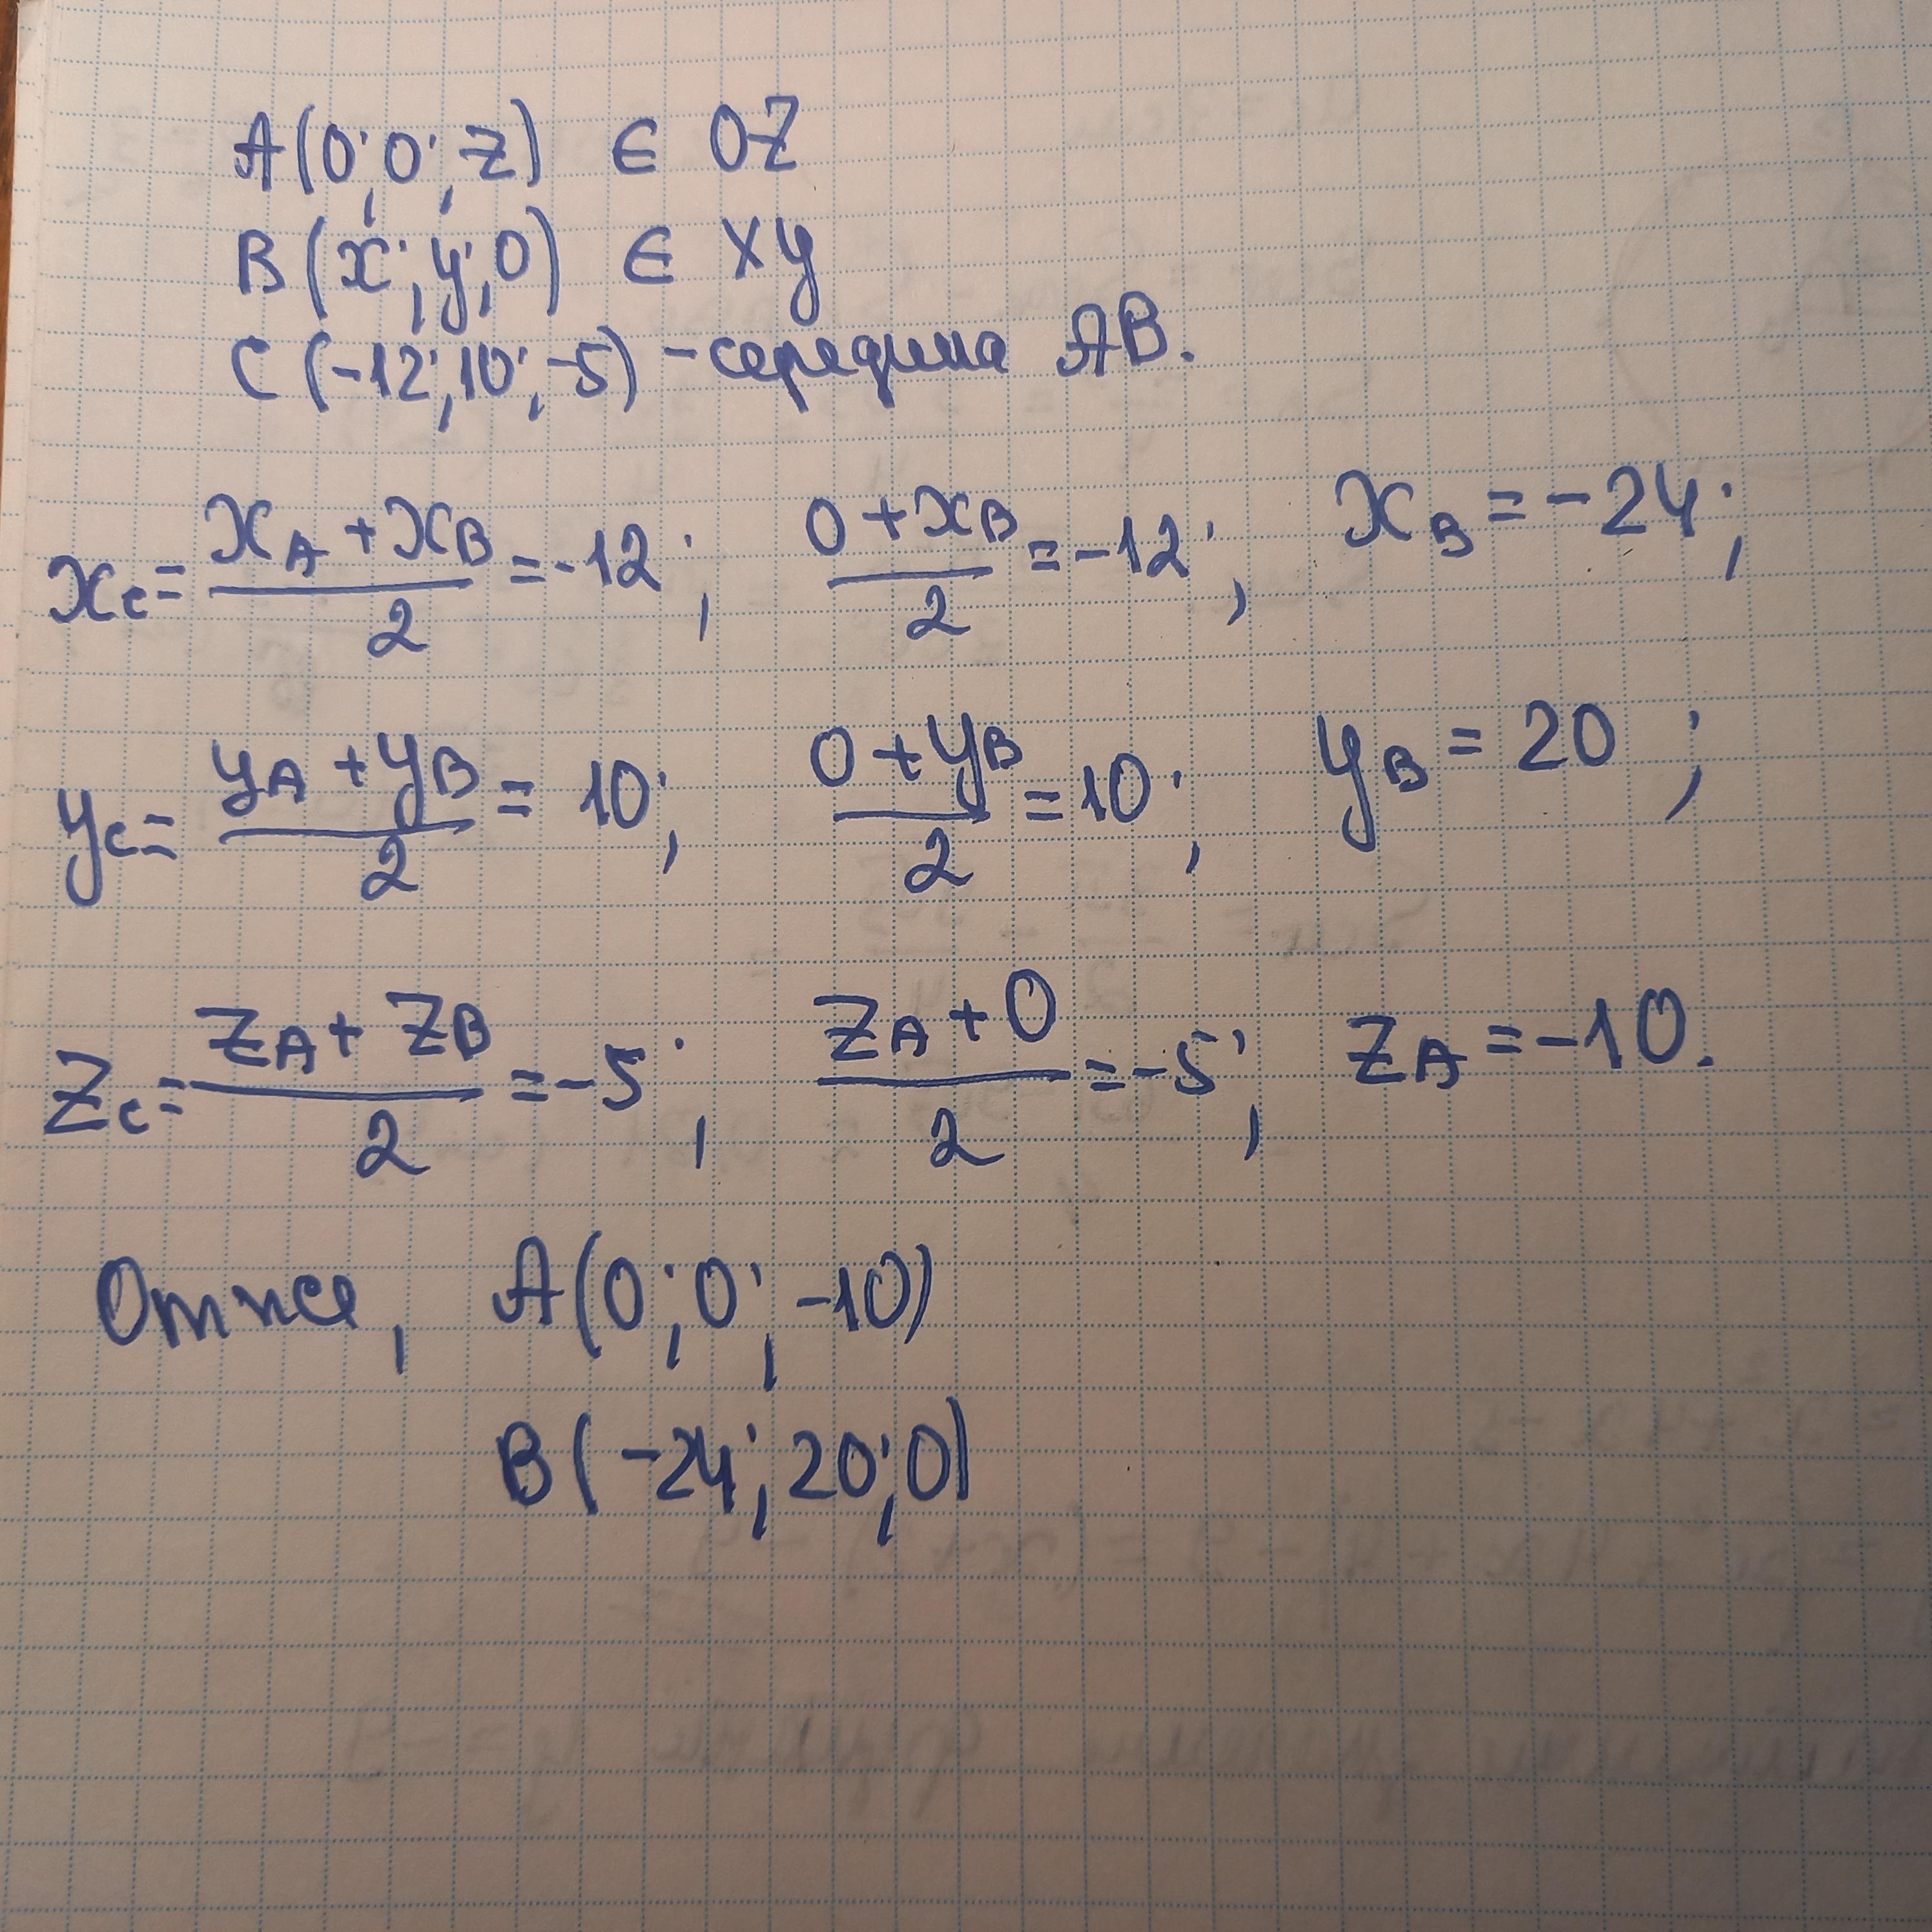 A(0; 0; z) ∈ OZ
B(x; y; 0) ∈ XY
C(-12; 10; -5) - середина AB.
x_C = (x_A + x_B)/2 = -12; (0 + x_B)/2 = -12; x_B = -24;
y_C = (y_A + y_B)/2 = 10; (0 + y_B)/2 = 10; y_B = 20;
z_C = (z_A + z_B)/2 = -5; (z_A + 0)/2 = -5; z_A = -10.
Отже, A(0; 0; -10)
B(-24; 20; 0)